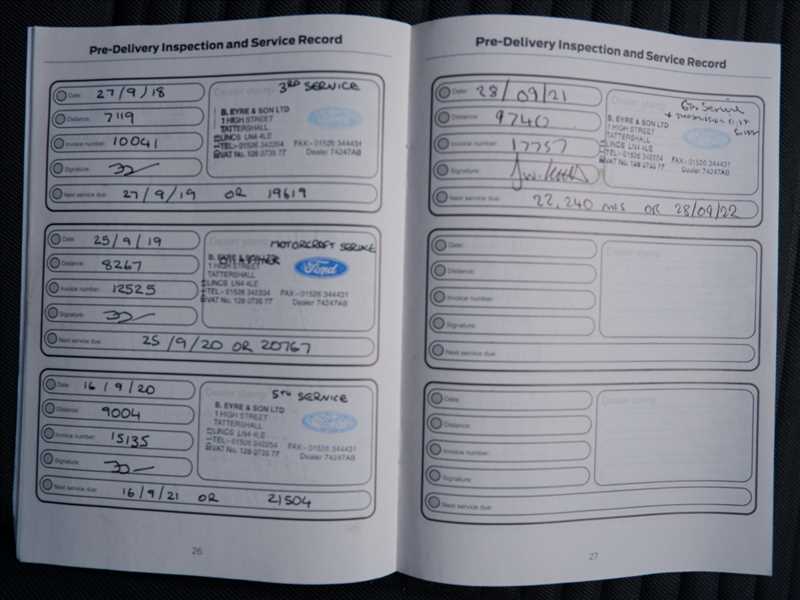 Pre-Delivery Inspection and Service Record
Date: 27/9/18
Distance: 7119
Invoice number: 10041
Signature:
3RD SERVICE
B. EYRE & SON LTD
1 HIGH STREET
TATTERSHALL
LINCS LN4 4LE
TEL:- 01526 342254 FAX:- 01526 344431
VAT No. 128 0735 77 Dealer 74247AB
Next service due: 27/9/19 OR 19619
Date: 25/9/19
Distance: 8267
Invoice number: 12525
Signature:
MOTORCRAFT SERVICE
1 HIGH STREET
TATTERSHALL
LINCS LN4 4LE
Ford
TEL:- 01526 342254 FAX:- 01526 344431
VAT No. 128 0735 77 Dealer 74247AB
Next service due: 25/9/20 OR 20767
Date: 16/9/20
Distance: 9004
Invoice number: 15135
Signature:
5TH SERVICE
B. EYRE & SON LTD
1 HIGH STREET
TATTERSHALL
LINCS LN4 4LE
TEL:- 01526 342254 FAX:- 01526 344431
VAT No. 128 0735 77 Dealer 74247AB
Next service due: 16/9/21 OR 21504
26
Pre-Delivery Inspection and Service Record
Date: 28/09/21
Distance: 9740
Invoice number: 17757
Signature:
6th Service
B. EYRE & SON LTD
1 HIGH STREET
TATTERSHALL
LINCS LN4 4LE
TEL:- 01526 342254 FAX:- 01526 344431
VAT No. 128 0735 77 Dealer 74247AB
Next service due: 22,240 MLS OR 28/09/22
Date:
Distance:
Invoice number:
Signature:
Next service due:
Date:
Distance:
Invoice number:
Signature:
Next service due:
27